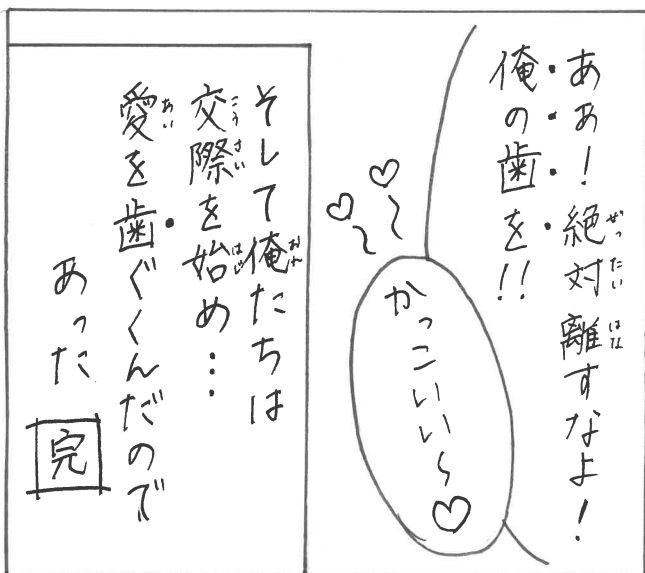 ああ!絶対離すなよ!
俺の歯を!!
かっこいい〜♡
そして俺たちは
交際を始め…
愛を歯ぐくんだので
あった
完